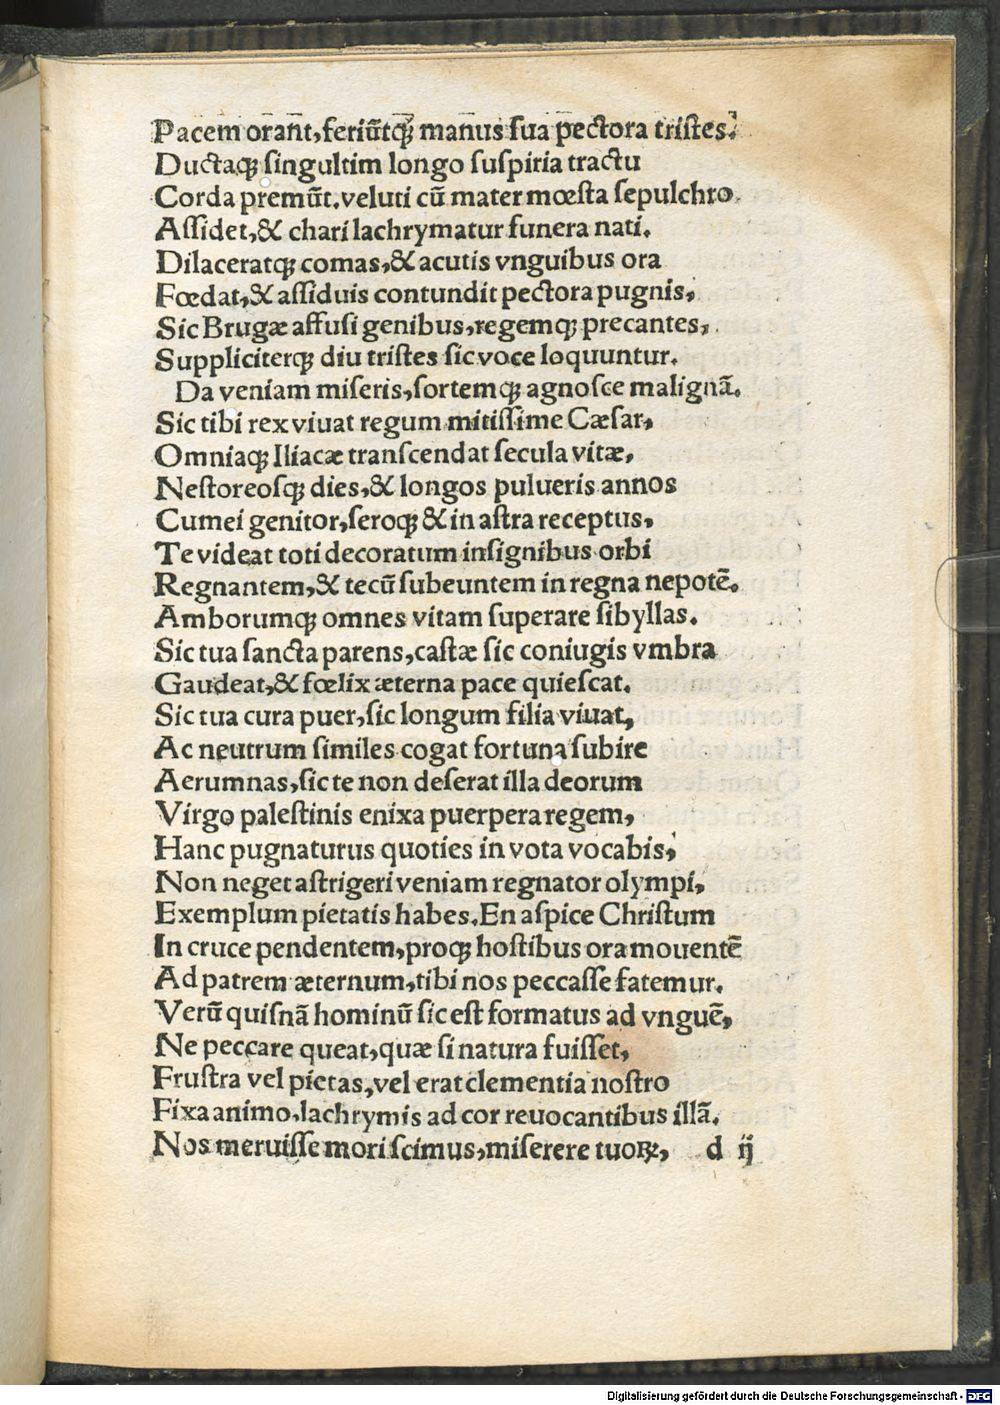 Pacem orant,feriūtqꝫ manus ſua pectora triſtes.
Ductaqꝫ ſingultim longo ſuſpiria tractu
Corda premūt.veluti cū mater mœſta ſepulchro.
Aſſidet,& chari lachrymatur funera nati.
Dilaceratqꝫ comas,& acutis vnguibus ora
Fœdat,& aſſiduis contundit pectora pugnis,
Sic Brugæ affuſi genibus,regemqꝫ precantes,
Suppliciterqꝫ diu triſtes ſic voce loquuntur.
Da veniam miſeris,ſortemqꝫ agnoſce malignā.
Sic tibi rex viuat regum mitiſſime Cæſar,
Omniaqꝫ Iliacæ tranſcendat ſecula vitæ,
Neſtoreoſqꝫ dies,& longos pulueris annos
Cumei genitor,ſeroqꝫ & in aſtra receptus,
Te videat toti decoratum inſignibus orbi
Regnantem,& tecū ſubeuntem in regna nepotē.
Amborumqꝫ omnes vitam ſuperare ſibyllas.
Sic tua ſancta parens,caſtæ ſic coniugis vmbra
Gaudeat,& fœlix æterna pace quieſcat.
Sic tua cura puer,ſic longum filia viuat,
Ac neutrum ſimiles cogat fortuna ſubire
Aerumnas,ſic te non deſerat illa deorum
Virgo paleſtinis enixa puerpera regem,
Hanc pugnaturus quoties in vota vocabis,
Non neget aſtrigeri veniam regnator olympi,
Exemplum pietatis habes.En aſpice Chriſtum
In cruce pendentem,proqꝫ hoſtibus ora mouentē
Ad patrem æternum,tibi nos peccaſſe fatemur.
Verū quiſnā hominū ſic eſt formatus ad vnguē,
Ne peccare queat,quæ ſi natura fuiſſet,
Fruſtra vel pietas,vel erat clementia noſtro
Fixa animo,lachrymis ad cor reuocantibus illā.
Nos meruiſſe mori ſcimus,miſerere tuoꝝ, d ij
Digitalisierung gefördert durch die Deutsche Forschungsgemeinschaft - DFG